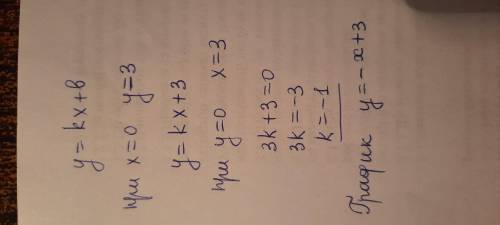 y = kx + b
при x = 0 y = 3
y = kx + 3
при y = 0 x = 3
3k + 3 = 0
3k = -3
k = -1
График y = -x + 3